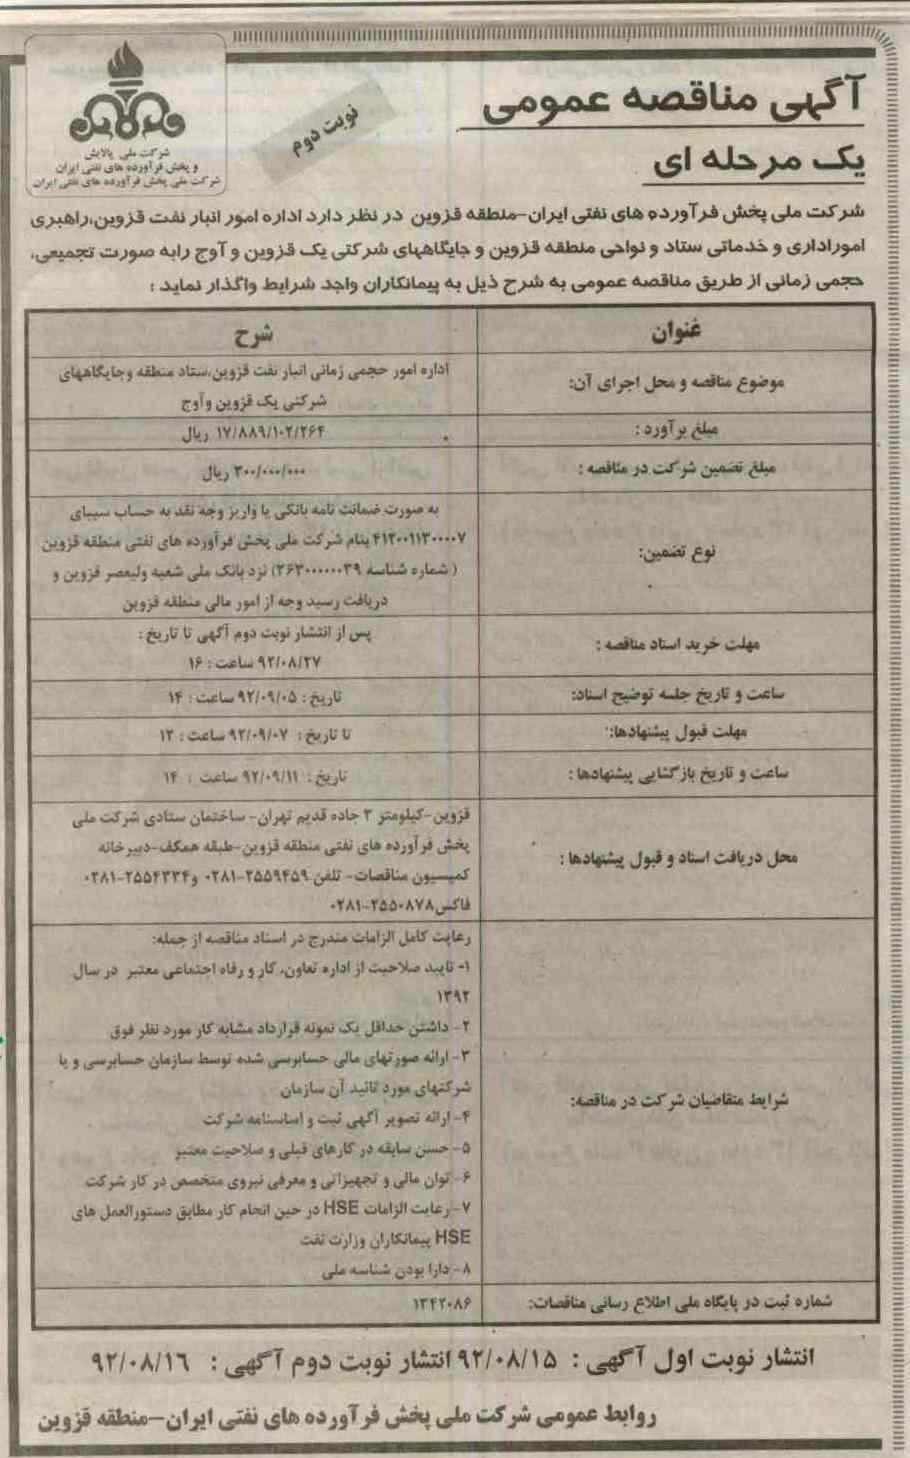 آگهی مناقصه عمومی
یک مرحله ای
نوبت دوم
شرکت ملی پالایش
و پخش فرآورده های نفتی ایران
شرکت ملی پخش فرآورده های نفتی ایران
شرکت ملی پخش فرآورده های نفتی ایران-منطقه قزوین در نظر دارد اداره امور انبار نفت قزوین،راهبری
اموراداری و خدماتی ستاد و نواحی منطقه قزوین و جایگاههای شرکتی یک قزوین و آوج رابه صورت تجمیعی،
حجمی زمانی از طریق مناقصه عمومی به شرح ذیل به پیمانکاران واجد شرایط واگذار نماید :
عنوان
شرح
موضوع مناقصه و محل اجرای آن:
اداره امور حجمی زمانی انبار نفت قزوین،ستاد منطقه وجایگاههای
شرکتی یک قزوین وآوج
مبلغ برآورد :
۱۷/۸۸۹/۱۰۲/۲۶۴ ریال
مبلغ تضمین شرکت در مناقصه :
۳۰۰/۰۰۰/۰۰۰ ریال
نوع تضمین:
به صورت ضمانت نامه بانکی یا واریز وجه نقد به حساب سیبای
۴۱۲۰۰۱۱۳۰۰۰۰۷ بنام شرکت ملی پخش فرآورده های نفتی منطقه قزوین
( شماره شناسه ۲۶۳۰۰۰۰۰۰۳۹) نزد بانک ملی شعبه ولیعصر قزوین و
دریافت رسید وجه از امور مالی منطقه قزوین
مهلت خرید اسناد مناقصه :
پس از انتشار نوبت دوم آگهی تا تاریخ :
۹۲/۰۸/۲۷ ساعت : ۱۶
ساعت و تاریخ جلسه توضیح اسناد:
تاریخ : ۹۲/۰۹/۰۵ ساعت : ۱۴
مهلت قبول پیشنهادها:
تا تاریخ : ۹۲/۰۹/۰۷ ساعت : ۱۲
ساعت و تاریخ بازگشایی پیشنهادها :
تاریخ : ۹۲/۰۹/۱۱ ساعت : ۱۴
محل دریافت اسناد و قبول پیشنهادها :
قزوین-کیلومتر ۲ جاده قدیم تهران- ساختمان ستادی شرکت ملی
پخش فرآورده های نفتی منطقه قزوین-طبقه همکف-دبیرخانه
کمیسیون مناقصات- تلفن ۲۵۵۹۴۵۹-۰۲۸۱ و۲۵۵۴۳۳۴-۰۲۸۱
فاکس۲۵۵۰۸۷۸-۰۲۸۱
شرایط متقاضیان شرکت در مناقصه:
رعایت کامل الزامات مندرج در اسناد مناقصه از جمله:
۱- تایید صلاحیت از اداره تعاون، کار و رفاه اجتماعی معتبر در سال
۱۳۹۲
۲- داشتن حداقل یک نمونه قرارداد مشابه کار مورد نظر فوق
۳- ارائه صورتهای مالی حسابرسی شده توسط سازمان حسابرسی و یا
شرکتهای مورد تائید آن سازمان
۴- ارائه تصویر آگهی ثبت و اساسنامه شرکت
۵- حسن سابقه در کارهای قبلی و صلاحیت معتبر
۶- توان مالی و تجهیزاتی و معرفی نیروی متخصص در کار شرکت
۷- رعایت الزامات HSE در حین انجام کار مطابق دستورالعمل های
HSE پیمانکاران وزارت نفت
۸- دارا بودن شناسه ملی
شماره ثبت در پایگاه ملی اطلاع رسانی مناقصات:
۱۳۴۲۰۸۶
انتشار نوبت اول آگهی : ۹۲/۰۸/۱۵ انتشار نوبت دوم آگهی : ۹۲/۰۸/۱۶
روابط عمومی شرکت ملی پخش فرآورده های نفتی ایران-منطقه قزوین